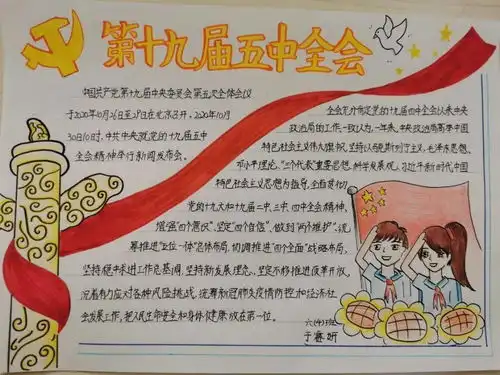 第十九届五中全会
中国共产党第十九届中央委员会第五次全体会议
于2020年10月26日至29日在北京召开，2020年10月
30日10时，中共中央就党的十九届五中
全会精神举行新闻发布会。
全会充分肯定党的十九届四中全会以来中央
政治局的工作，一致认为，一年来，中央政治局高举中国
特色社会主义伟大旗帜，坚持以马克思列宁主义、毛泽东思想、
邓小平理论、"三个代表"重要思想、科学发展观、习近平新时代中国
特色社会主义思想为指导，全面贯彻
党的十九大和十九届二中、三中、四中全会精神，
增强"四个意识"、坚定"四个自信"、做到"两个维护"，统
筹推进"五位一体"总体布局，协调推进"四个全面"战略布局，
坚持稳中求进工作总基调，坚持新发展理念，坚定不移推进改革开放，
沉着有力应对各种风险挑战，统筹新冠肺炎疫情防控和经济社
会发展工作，把人民生命安全和身体健康放在第一位。
六(4)班
于赛妍